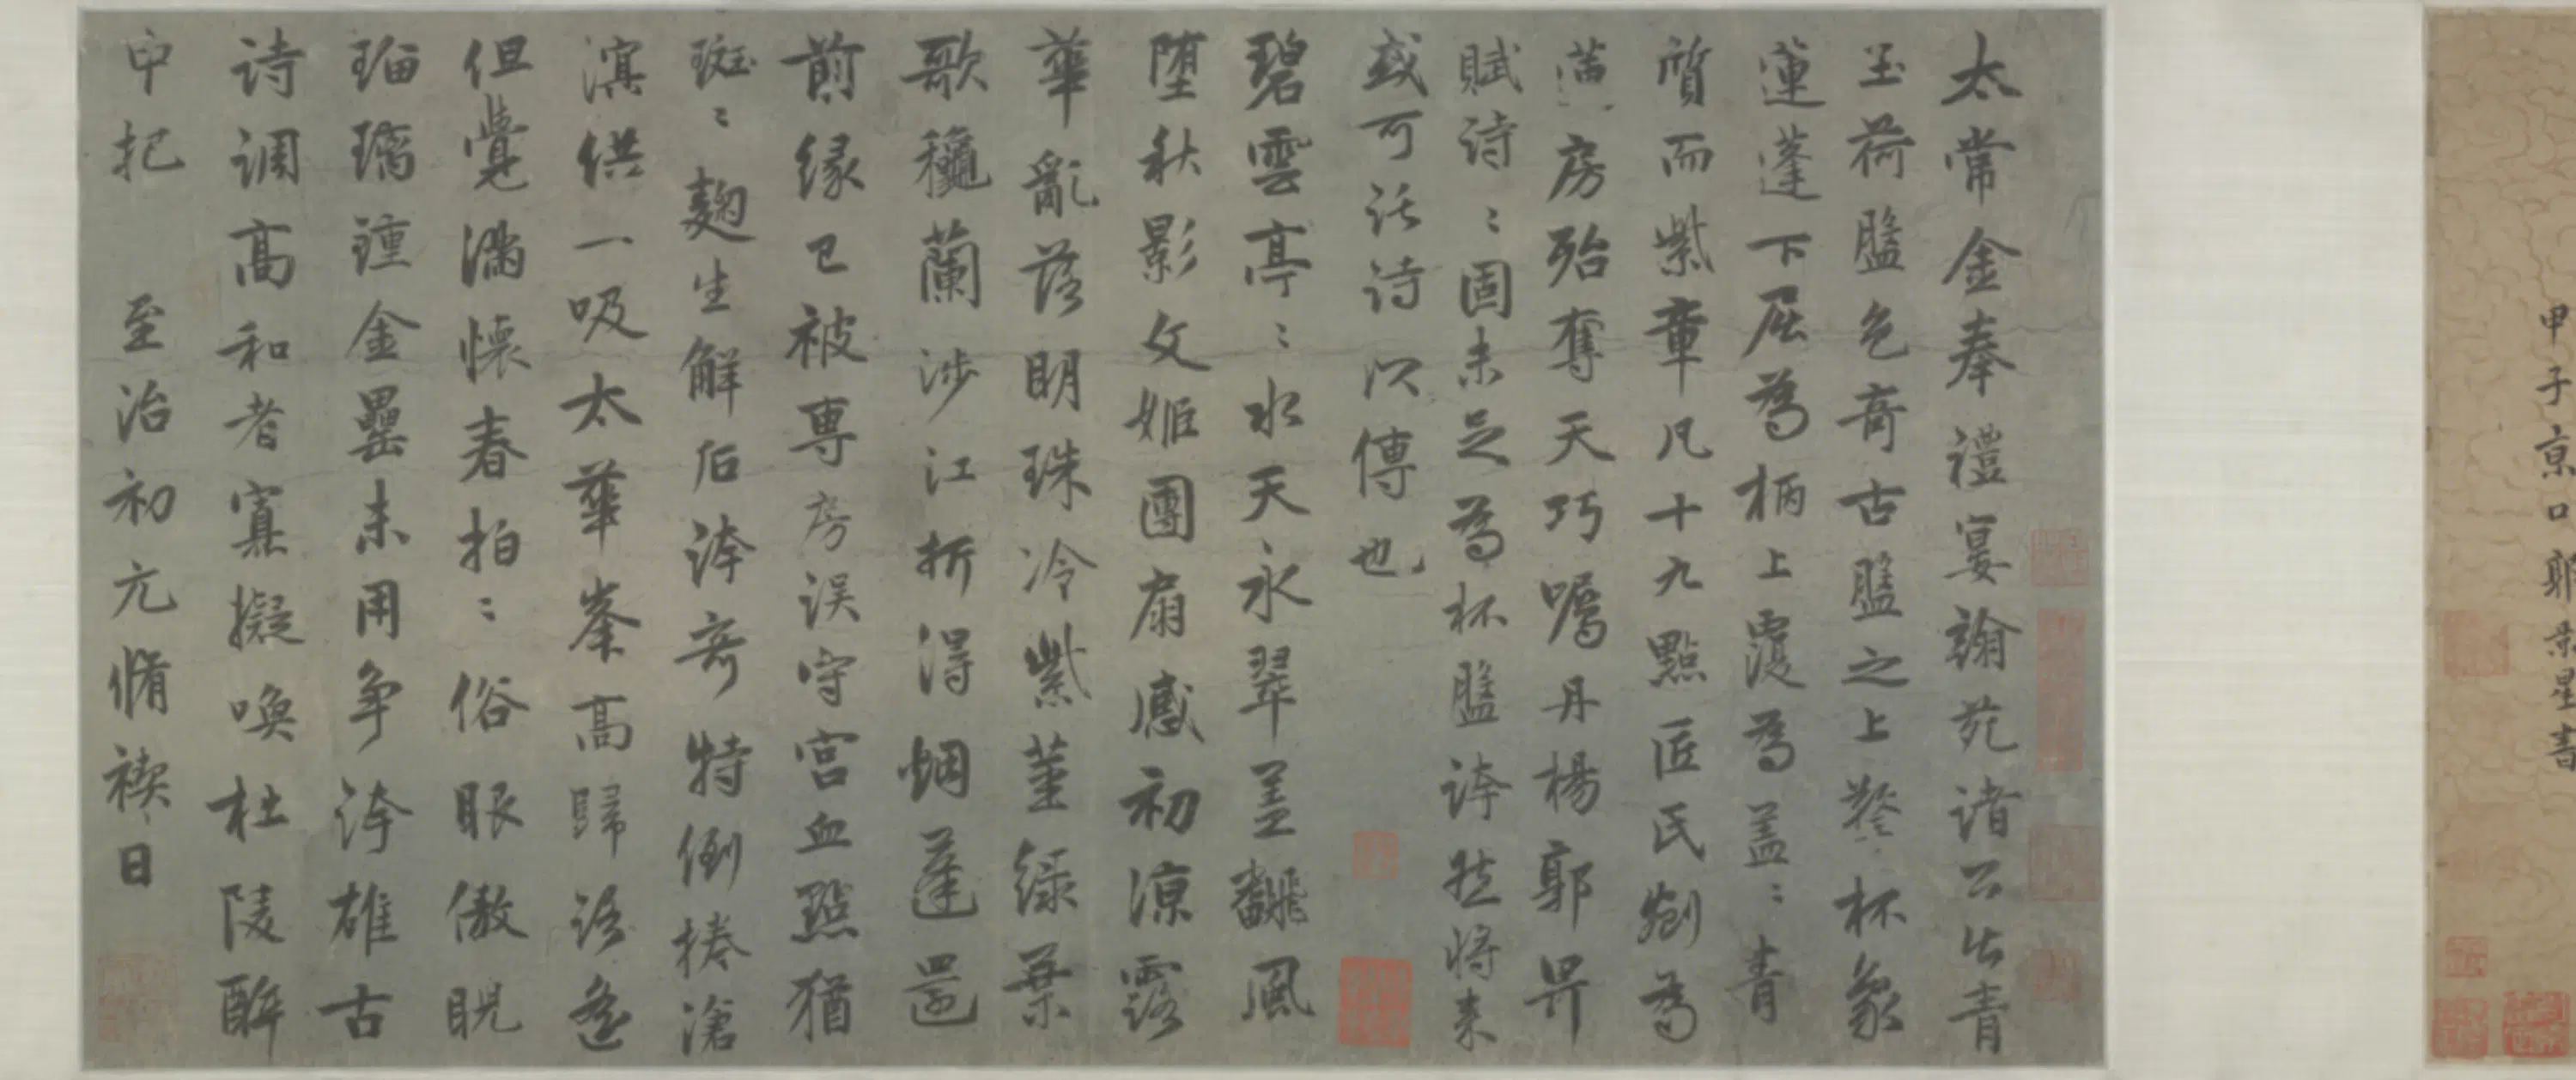 太常金奉禮宴翰苑諸公出青
玉荷盤色奇古盤之上獒杯象
蓮蓬下屈為柄上覆為蓋〻青
質而紫章凡十九點匠氏剜為
菂房殆奪天巧囑丹楊郭畀
賦詩〻固未足為杯盤誇然將來
或可託詩以傳也
碧雲亭〻水天永翠蓋翻風
墮秋影文姬團扇感初涼露
華亂落明珠冷紫莖綠葉
歌穠蘭涉江折得烟蓬還
前緣已被專房誤守宮血點猶
斑〻麴生解后誇奇特倒捲滄
溟供一吸太華峯高歸路遙
但覺滿懷春拍〻俗眼傲睨
瑙璃鍾金罍未用爭誇雄古
詩調高和者寡擬喚杜陵醉
中起 至治初元脩禊日
甲子京口耶 星書